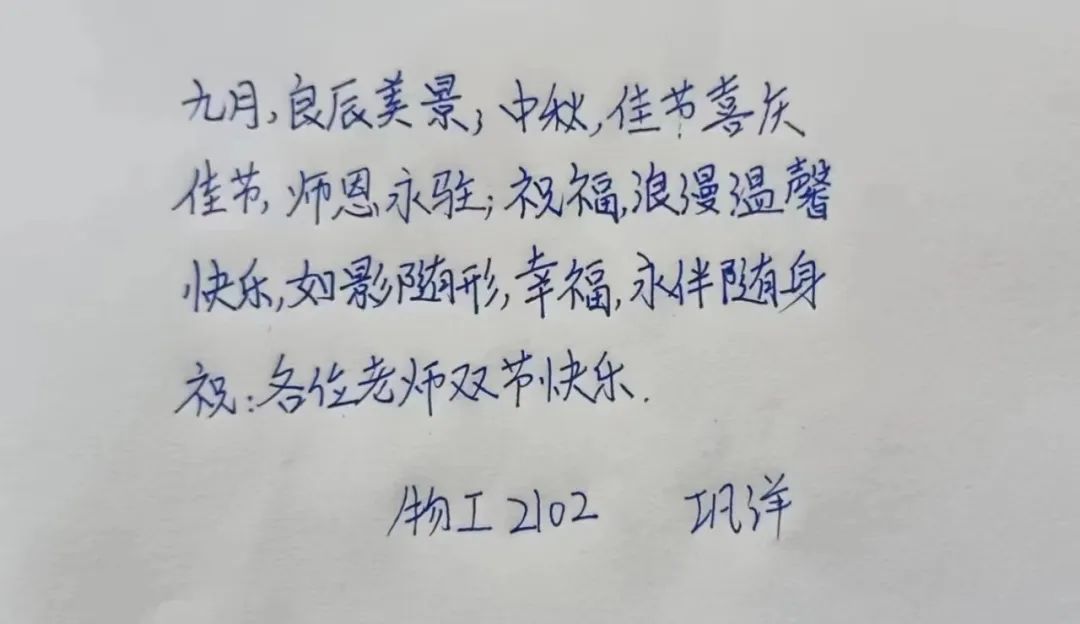 九月,良辰美景;中秋,佳节喜庆
佳节,师恩永驻;祝福,浪漫温馨
快乐,如影随形,幸福,永伴随身
祝:各位老师双节快乐.
物工2102 巩洋